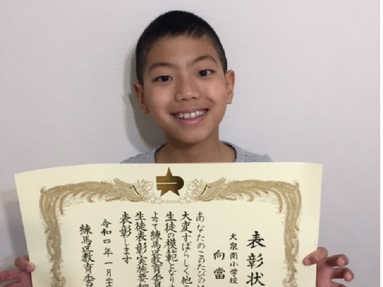 表彰状
大泉南小学校
向當
あなたのこのたびの
大変すばらしく他
生徒の模範となりま
よって練馬区教育委
生徒表彰実施要綱
表彰します
令和四年一月
練馬区教育委